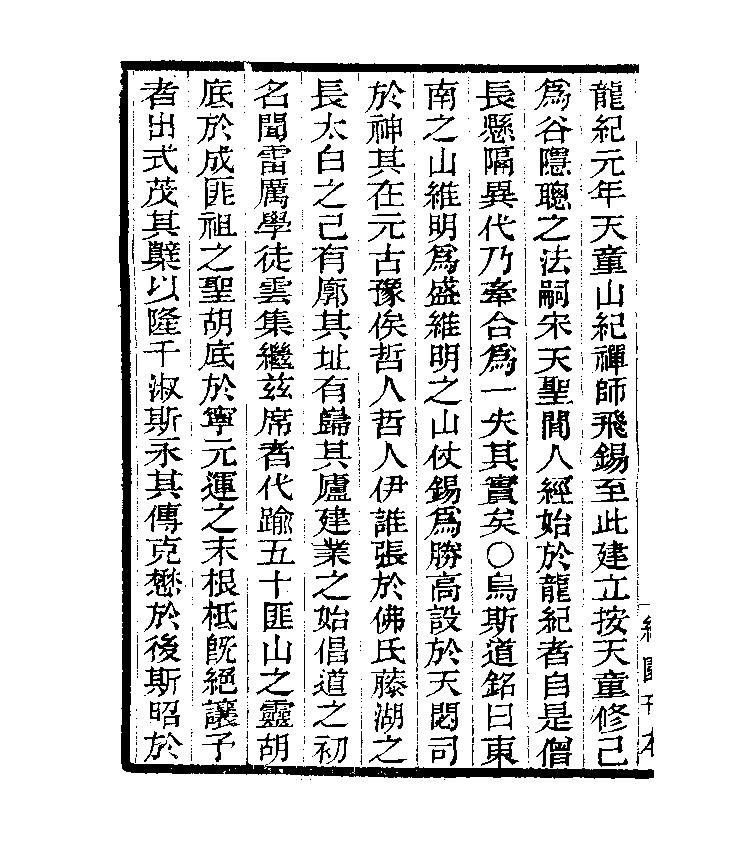 龍紀元年天童山紀禪師飛錫至此建立按天童修己
為谷隱聰之法嗣宋天聖間人經始於龍紀者自是僧
長懸隔異代乃牽合為一失其實矣○烏斯道銘曰東
南之山維明為盛維明之山仗錫為勝高設於天閟司
於神其在元古豫俟哲人哲人伊誰張於佛氏藤湖之
長太白之己有廓其址有歸其廬建業之始倡道之初
名聞雷厲學徒雲集繼茲席者代踰五十匪山之靈胡
底於成匪祖之聖胡底於寧元運之末根柢既絕讓予
者出式茂其櫱以隆千淑斯承其傳克懋於後斯昭於